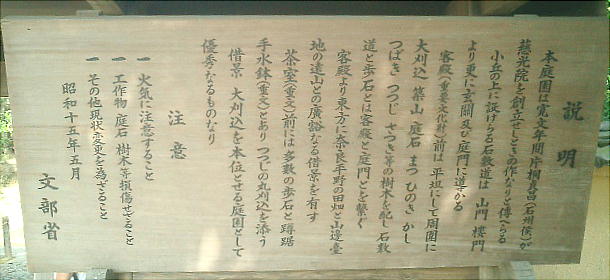 説明
本庭園は寛文年間片桐貞昌(石州侯)が
慈光院を創立せしときの作なりと傳へらる
小丘の上に設けらる石敷道は 山門 楼門
より更に玄關及び庭門に導かる
客殿(重要文化財)前は 平坦にして周囲に
大刈込 築山 庭石 まつ ひのき かし
つばき つつじ さつき等の樹木を配し 石敷
道と歩石とは客殿と庭門とを繋ぐ
客殿より東方に奈良平野の田畑と山邊臺
地の遠山との廣豁なる借景を有す
茶室(重文)前には 多数の歩石と蹲踞
手水鉢(重文)とあり つつじの丸刈込を添う
借景 大刈込を本位とせる庭園として
優秀なるものなり
注意
一 火気に注意すること
一 工作物 庭石 樹木等損傷せざること
一 その他現状変更を為ざること
昭和十五年五月
文部省